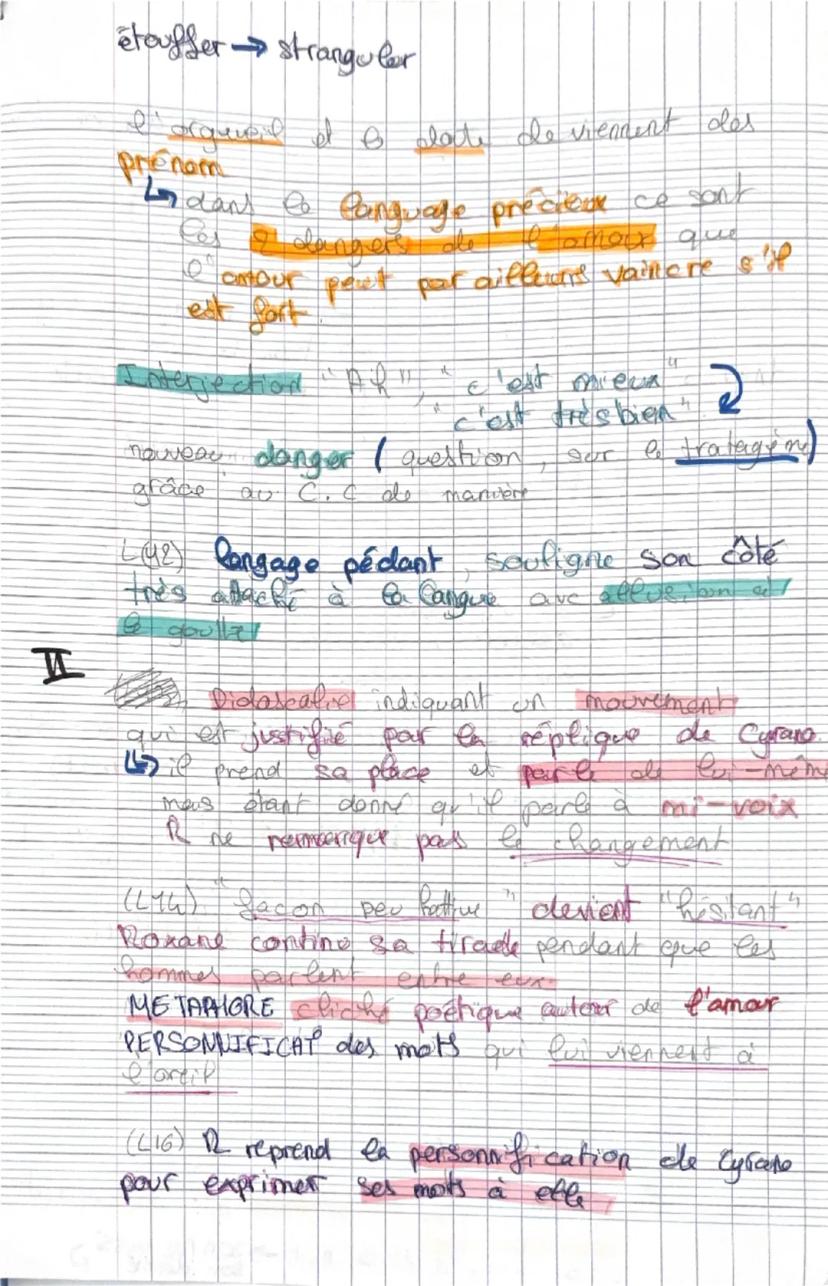 étouffer → stranguler
l'orgueil et le doute deviennent des
prénom
↳ dans le language précieux ce sont
les 2 dangers de l'amour que
l'amour peut par ailleurs vaincre s'il
est fort.
Interjection "Ah", "c'est mieux"
"c'est très bien"
nouveau danger (question, sur le tratagème)
grâce au C.C de manière
L(12) langage pédant, souligne son côté
très attaché à la langue avc allusion à
la goutte
II
Didascalie indiquant un mouvement
qui est justifié par la réplique de Cyrano.
↳ il prend sa place et parle de lui-même
mais étant donné qu'il parle à mi-voix
R ne remarque pas le changement
(L14) "façon peu hative" devient "hésitant"
Roxane contine sa tirade pendant que les
hommes parlent entre eux.
METAPHORE cliché poétique autour de l'amour
PERSONNIFICAT° des mots qui lui viennent à
l'oreil
(L16) R reprend la personnification de Cyrano
pour exprimer ses mots à elle